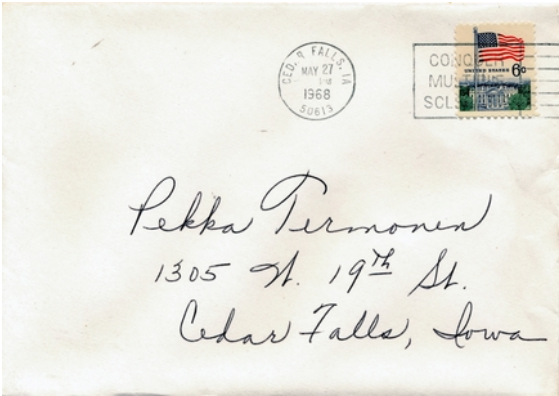 CED R FALLS, IA
MAY 27
PM
1968
50613
CONQUER
MULTIPLE
SCL
UNITED STATES 6c
Pekka Termonen
1305 W. 19th St.
Cedar Falls, Iowa